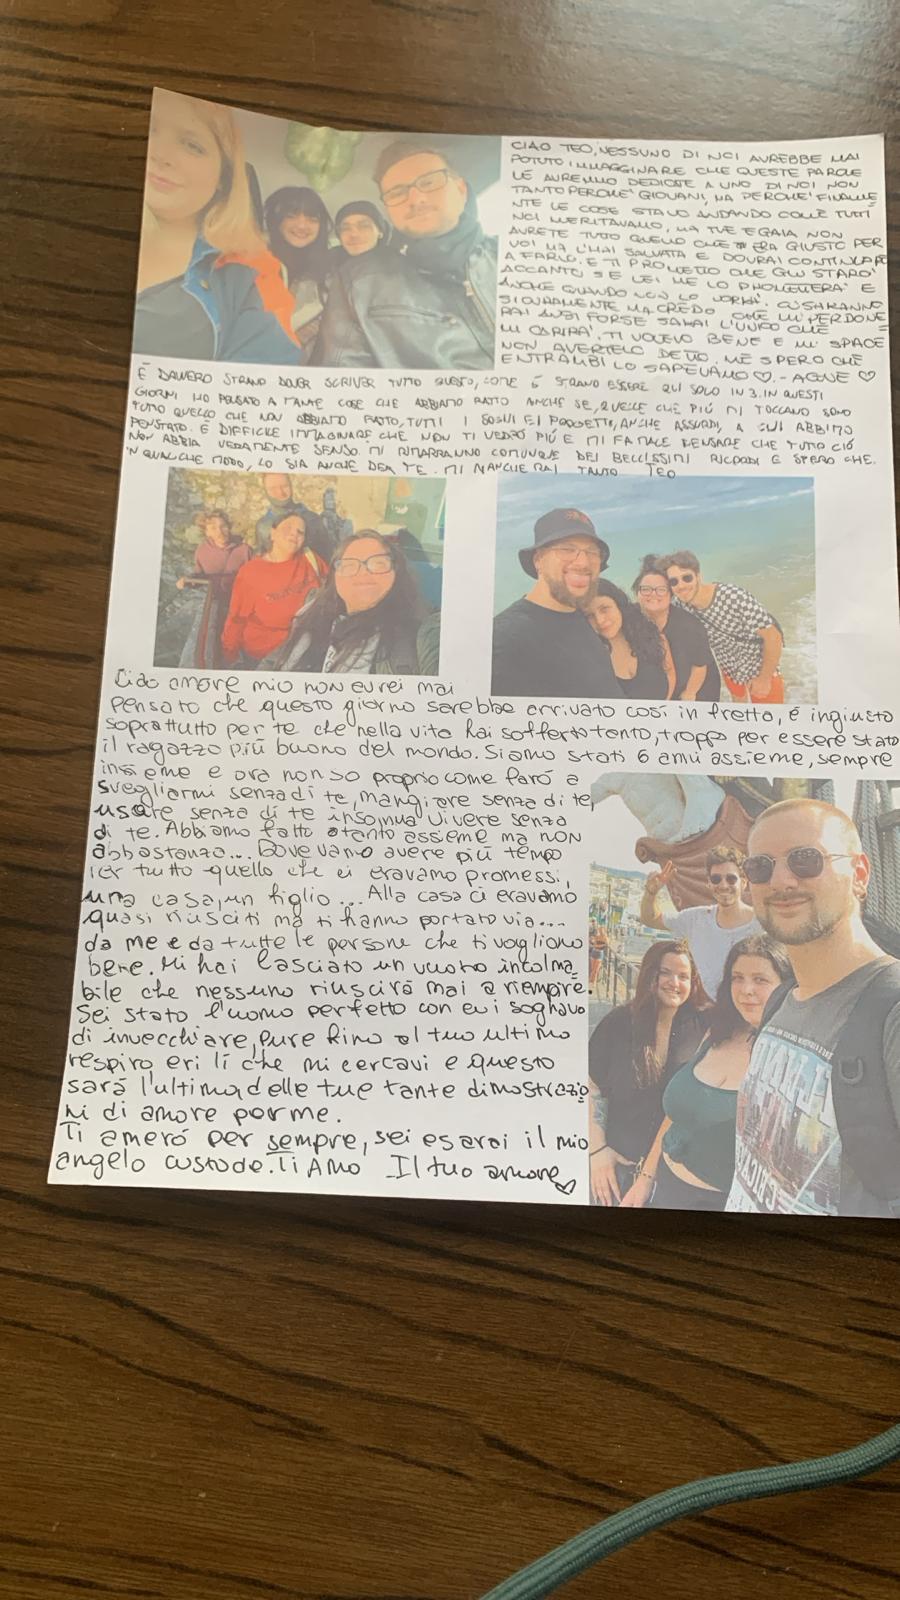 CIAO TEO, NESSUNO DI NOI AVREBBE MAI
POTUTO IMMAGGINARE CHE QUESTE PAROLE
LE AVREMMO DEDICATE A UNO DI NOI NON
TANTO PERCHE' GIOVANI, MA PERCHE' FINALME
NTE LE COSE STAVO ANDANDO COME TUTTI
NOI MERITAVAMO, MA TU E GAIA NON
AVRETE TUTTO QUELLO CHE ERA GIUSTO PER
VOI MA L'HAI SALVATA E DOVRAI CONTINUARE
A FARLO. E TI PROMETTO CHE GLI STARO'
ACCANTO SE LEI ME LO PROMETTERA' E
ANCHE QUANDO NON LO VORRA'. CI SARANNO
SICURAMENTE MA CREDO CHE MI PERDONE
RAI ANZI FORSE SARAI L'UNICO CHE
MI CAPIRA'. TI VOLEVO BENE E MI SPACE
NON AVERTELO DETTO. ME SPERO CHE
ENTRAMBI LO SAPEVAMO ♡. - AGNE ♡
È DAVVERO STRANO DOVER SCRIVER TUTTO QUESTO, COME È STRANO ESSERE QUI SOLO IN 3. IN QUESTI
GIORNI HO PENSATO A TANTE COSE CHE ABBIAMO FATTO ANCHE SE, QUELLE CHE PIÙ MI TOCCANO SONO
TUTTO QUELLO CHE NON ABBIAMO FATTO, TUTTI I SOGNI E I PROGETTI, ANCHE ASSURDI, A CUI ABBIMO
PENSTATO. È DIFFICILE IMMAGINARE CHE NON TI VEDRÒ PIÙ E MI FA MALE PENSARE CHE TUTTO CIÒ
NON ABBIA VERAMENTE SENSO. MI RIMARRANNO COMUNQUE DEI BELLISSIMI RICRODI E SPERO CHE.
IN QUALCHE MODO, LO SIA ANCHE PER TE. MI MANCHERAI TANTO TEO
Ciao amore mio non avrei mai
pensato che questo giorno sarebbe arrivato così in fretta, è ingiusto
soprattutto per te che nella vita hai sofferto tanto, troppo per essere stato
il ragazzo più buono del mondo. Siamo stati 6 anni assieme, sempre
insieme e ora non so proprio come farò a
svegliarmi senza di te, mangiare senza di te,
usare senza di te insomma vivere senza
di te. Abbiamo fatto tanto assieme ma non
abbastanza... Dovevamo avere più tempo
per tutto quello che ci eravamo promessi,
una casa, un figlio... Alla casa ci eravamo
quasi riusciti ma ti hanno portato via...
da me e da tutte le persone che ti vogliono
bene. Mi hai lasciato un vuoto incolma
bile che nessuno riuscirà mai a riempire.
Sei stato l'uomo perfetto con cui sognavo
di invecchiare, pure fino al tuo ultimo
respiro eri lì che mi cercavi e questo
sarà l'ultima delle tue tante dimostrazio
ni di amore per me.
Ti amerò per sempre, sei e sarai il mio
angelo custode. Ti Amo Il tuo amore♡